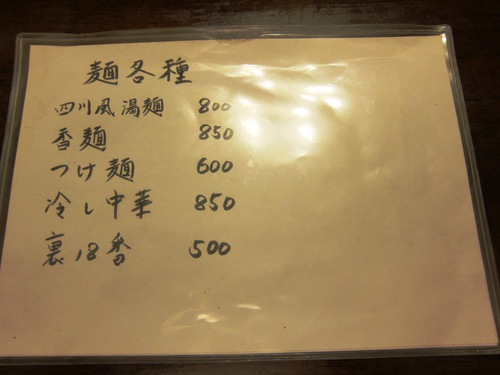 麺各種
四川風湯麺 800
香麺 850
つけ麺 600
冷し中華 850
裏18番 500